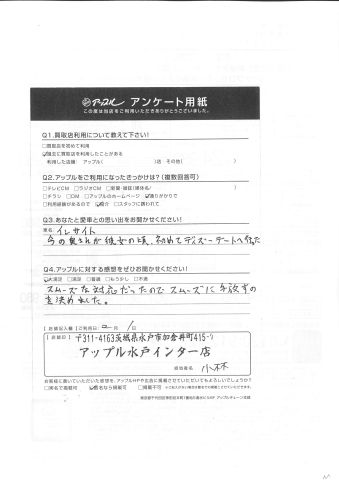 アップル アンケート用紙
この度は当店をご利用いただきありがとうございました。
Q1.買取店利用について教えて下さい!
□買取店を初めて利用
☑過去に買取店を利用したことがある
利用した店舗 アップル( )店 その他( )
Q2.アップルをご利用になったきっかけは?(複数回答可)
□テレビCM □ラジオCM □新聞・雑誌(媒体名/ )
□チラシ □DM □アップルのホームページ ☑通りがかりで
□利用経験があるので ☑紹介 □スタッフに誘われて
Q3.あなたと愛車との思い出をお聞かせください!
車名 インサイト
今の奥さんが彼女の頃、初めてディズニーデートへ行った
Q4.アップルに対する感想をぜひお聞かせください!
☑大満足 □満足 □普通 □もう少し □不満
スムーズな対応だったのでスムーズに手放す事
を決めれました。
【お客様記入欄】【ご利用日:2月/日
【店舗印】
〒311-4163茨城県水戸市加倉井町415-1
アップル水戸インター店
担当者名 小林
お客様に書いていただいた感想を、アップルHPや広告に掲載させていただいてもよろしいでしょうか?
□実名で掲載可 ☑匿名なら掲載可 □掲載不可